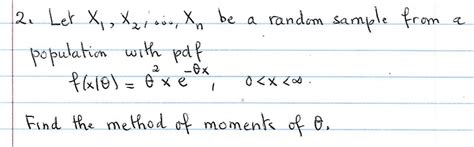 2. Let X₁, X₂, ..., Xₙ be a random sample from a
population with pdf
f(x|θ) = θ² x e^{-θx}, 0<x<∞.
Find the method of moments of θ.